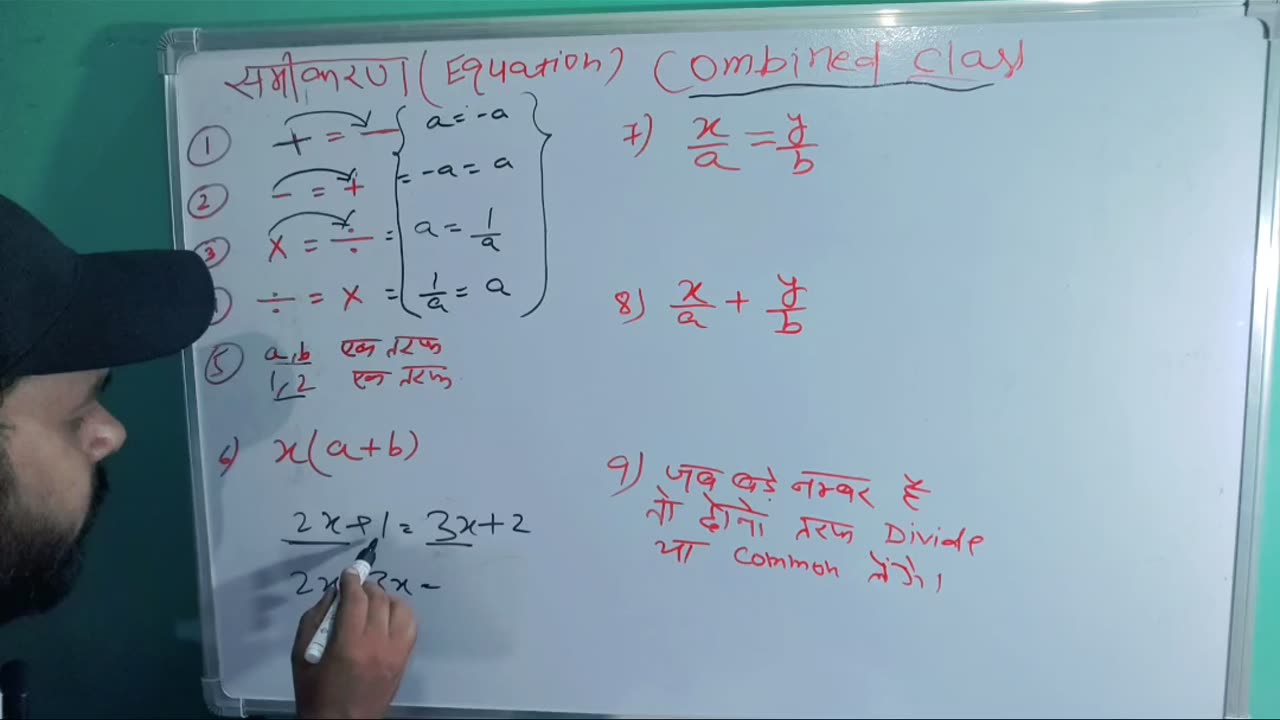 समीकरण (Equation) Combined Class
① + = - { a = -a
② - = + = -a = a
3 × = ÷ = a = 1/a
÷ = × = 1/a = a
⑤ a,b एक तरफ
1,2 एक तरफ
6) x(a+b)
2x+1 = 3x+2
2x 3x =
7) x/a = y/b
8) x/a + y/b
9) जब बड़े नम्बर हैं
तो दोनो तरफ Divide
या Common लेंगे।